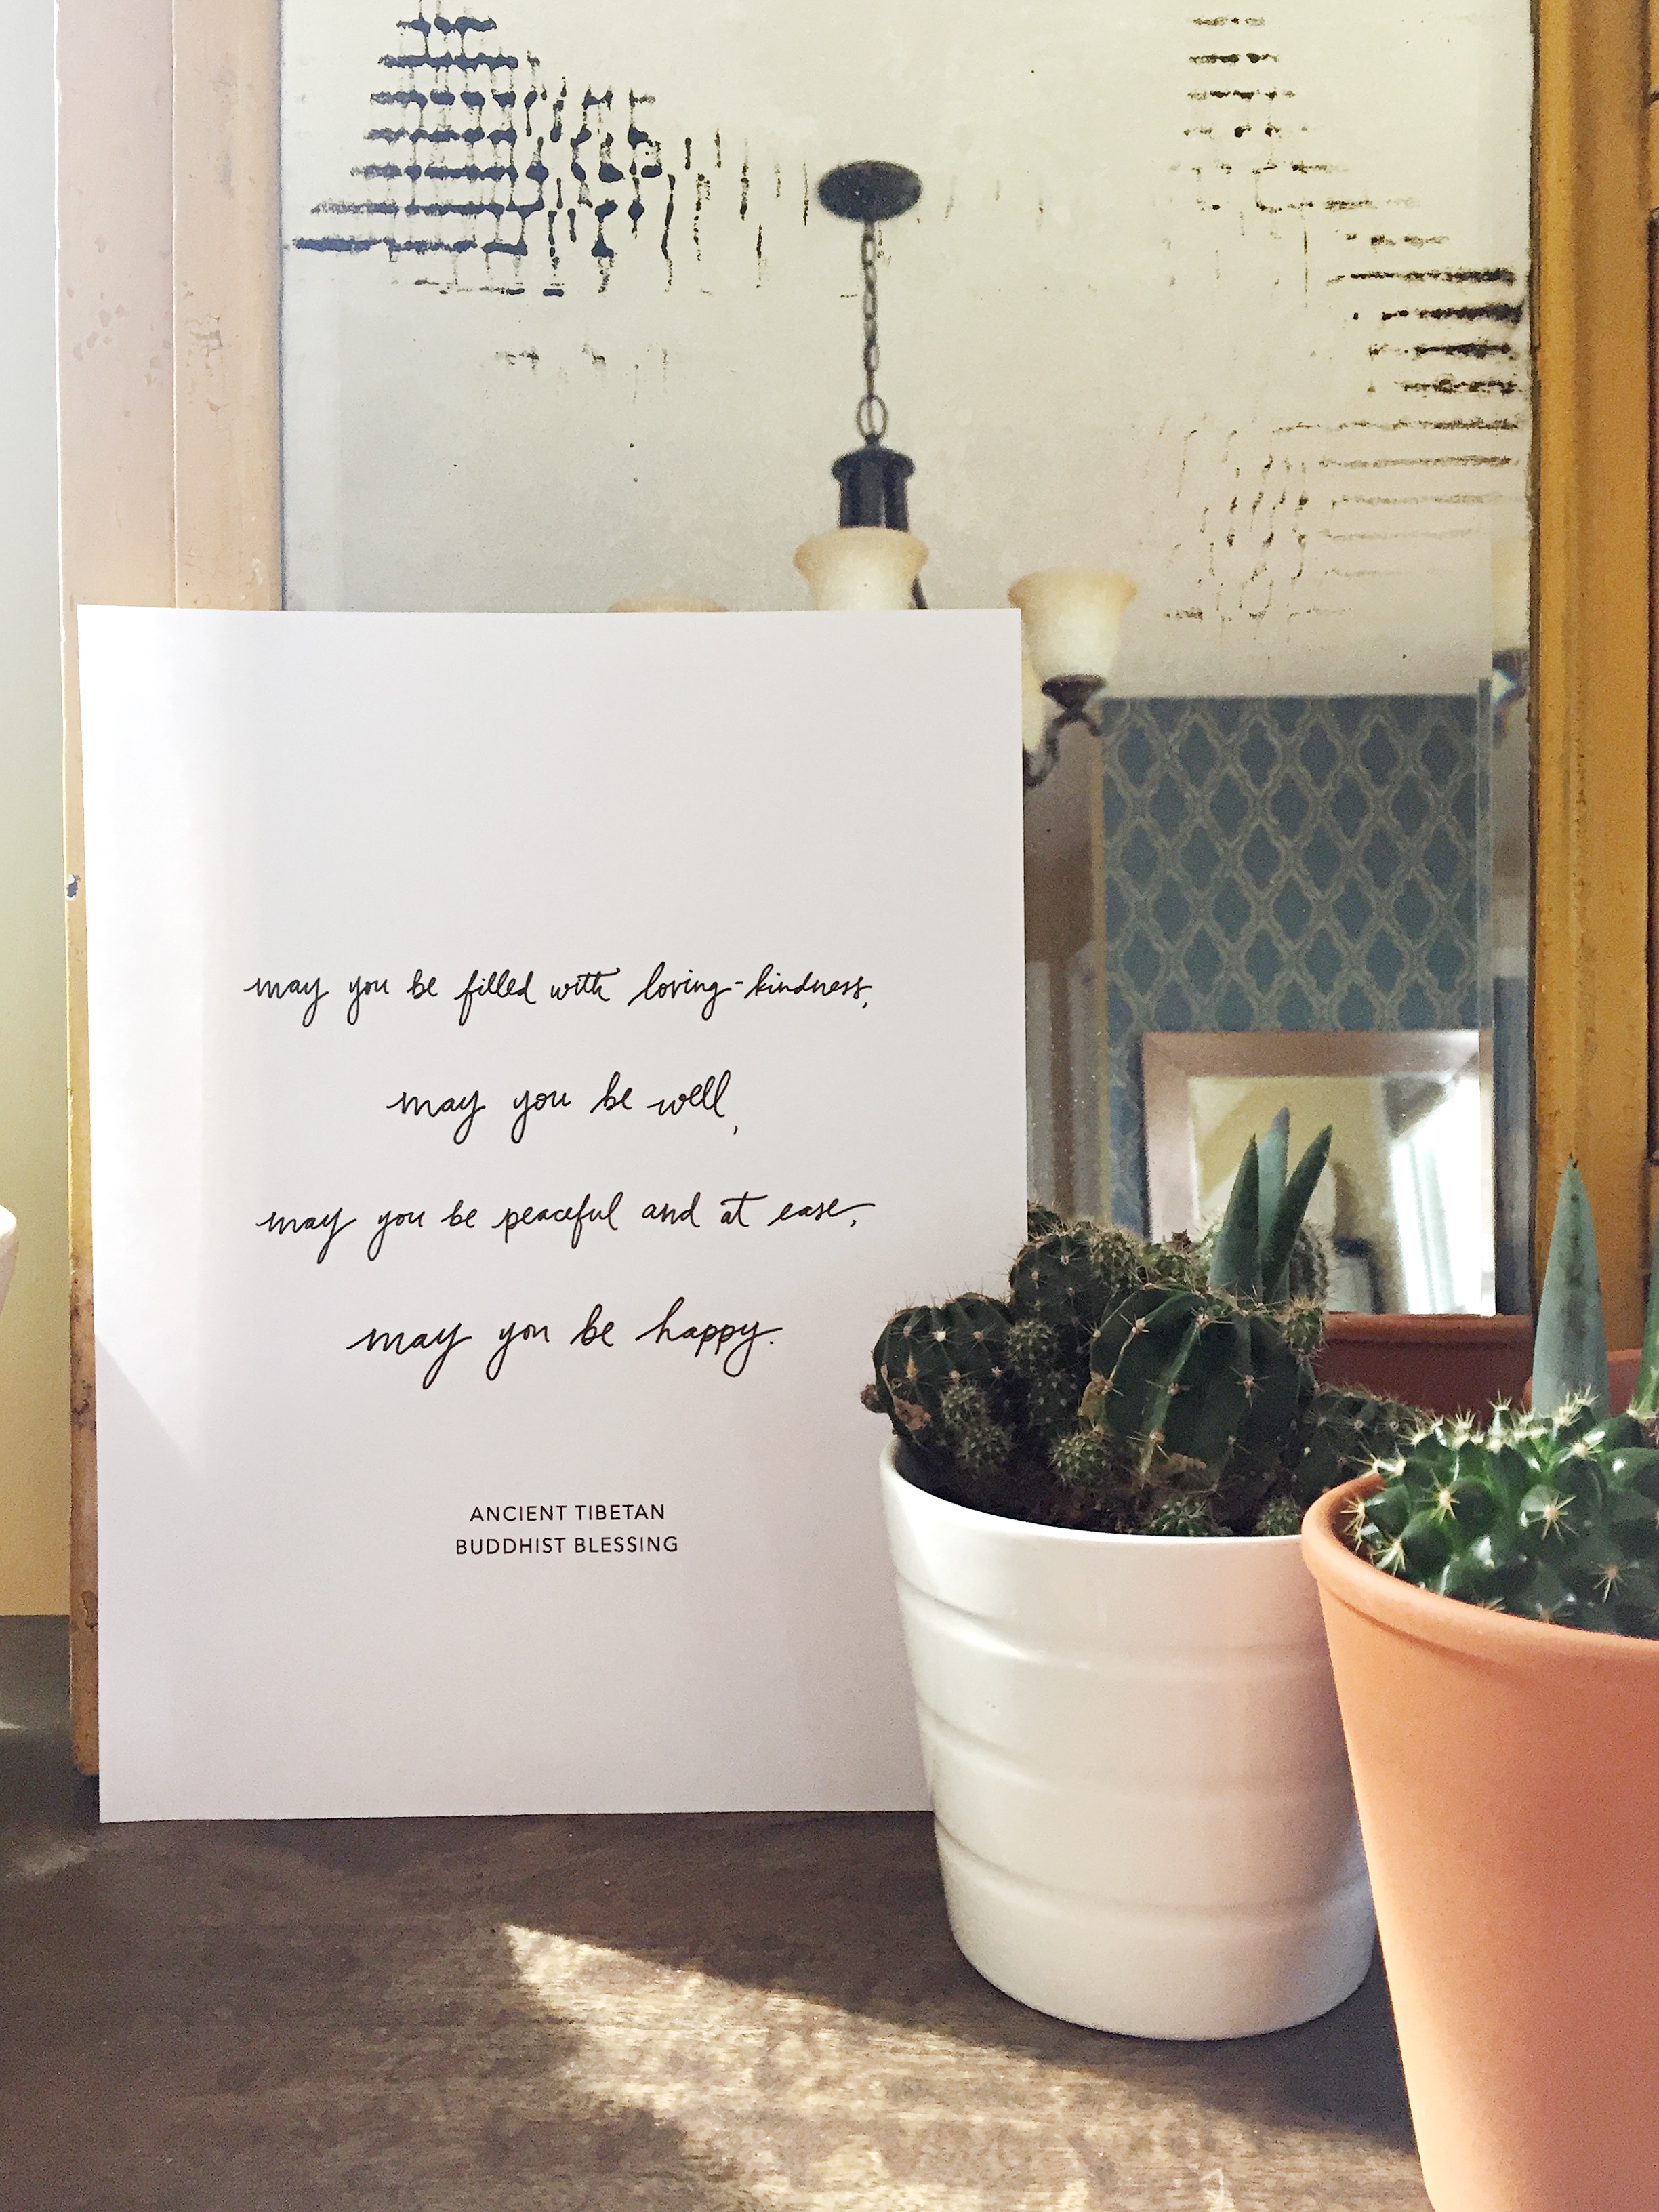 may you be filled with loving-kindness,
may you be well,
may you be peaceful and at ease,
may you be happy.
ANCIENT TIBETAN
BUDDHIST BLESSING